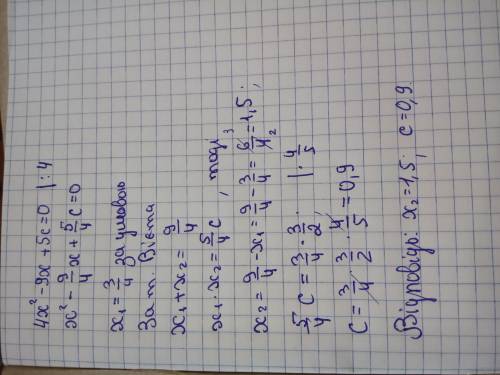 4x² - 9x + 5c = 0 | : 4
x² - 9/4 x + 5/4 c = 0
x₁ = 3/4 за умовою
За т. Вієта
x₁ + x₂ = 9/4
x₁ · x₂ = 5/4 c , тоді
x₂ = 9/4 - x₁ = 9/4 - 3/4 = 6/4 = 3/2 = 1,5 ;
5/4 c = 3/4 · 3/2 ; | · 4/5
c = 3/4 · 3/2 · 4/5 = 0,9
Відповідь: x₂ = 1,5 ; c = 0,9.